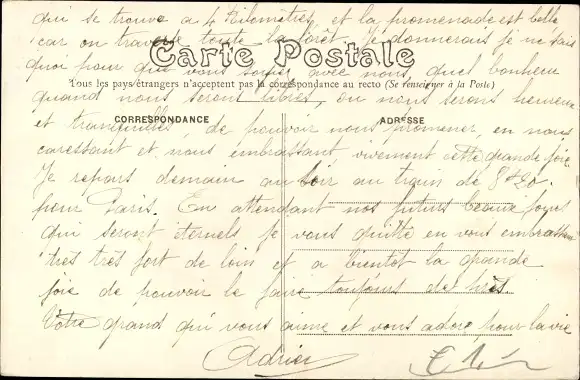 qui se trouve a 4 Kilomètres, et la promenade est belle
car on traverse toute la forêt. Je donnerais je ne sais
Carte Postale
quoi pour que vous soyiez avec nous, quel bonheur
Tous les pays étrangers n'acceptent pas la correspondance au recto (Se renseigner à la Poste)
quand nous serons libres, où nous serons heureux
CORRESPONDANCE ADRESSE
et tranquilles, de pouvoir nous promener, en nous
caressant et nous embrassant vivement cette grande joie
Je repars demain au soir au train de 8 h 20
pour Paris. En attendant nos futurs beaux jours
qui seront éternels je vous quitte en vous embrassant
très très fort de loin et a bientôt la grande
joie de pouvoir le faire toujours de près.
Votre grand qui vous aime et vous adore pour la vie
Adrien